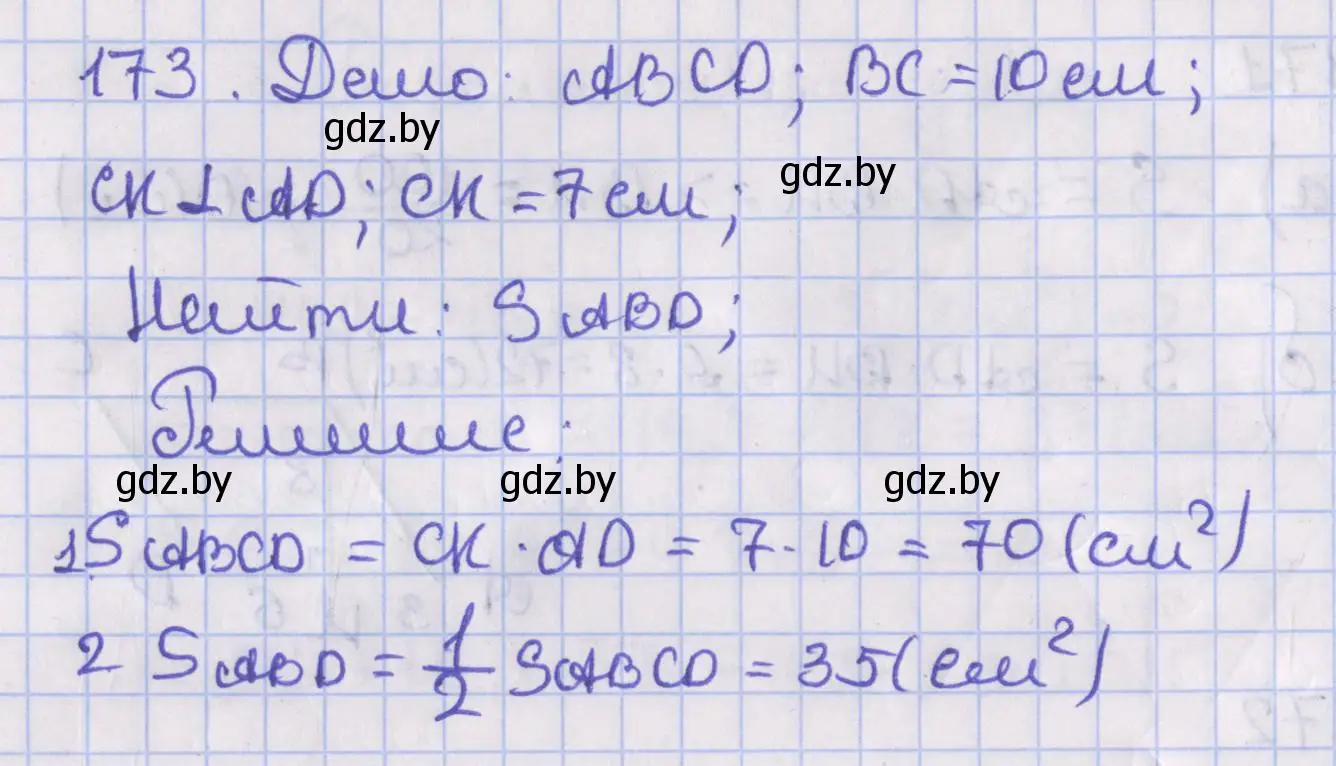 173. Дано: ABCD; BC = 10 см;
gdz.by
gdz.by
CK ⊥ AD; CK = 7 см;
Найти: S ABD;
Решение:
gdz.by gdz.by gdz.by
1 S ABCD = CK · AD = 7 · 10 = 70 (см²)
2 S ABD = 1/2 S ABCD = 35 (см²)